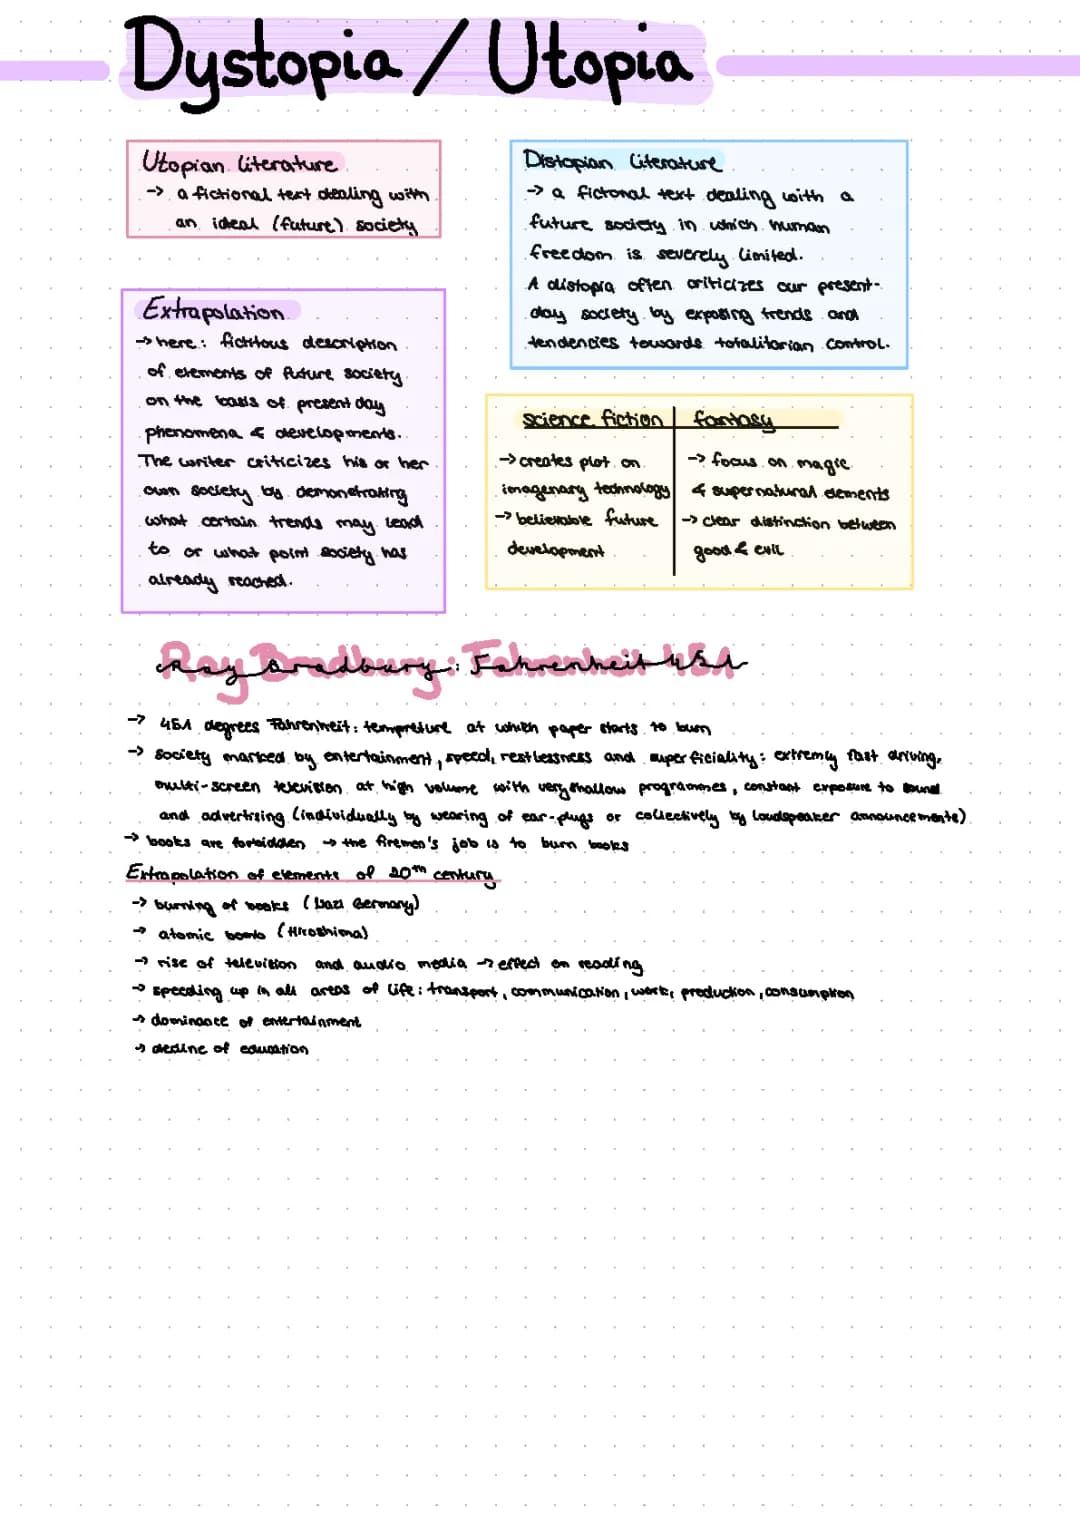 Dystopia / Utopia
Utopian literature
-> a fictional text dealing with
an ideal (future) society
Distopian literature
-> a fictonal text dealing with a
future society in which human
freedom is severely limited.
A distopia often criticizes our present-
day society by exposing trends and
tendencies towards totalitarian control.
Extrapolation
-> here: fictitous description
of elements of future society
on the basis of present day
phenomena & developments.
The writer criticizes his or her
own society by demonstrating
what certain trends may lead
to or what point society has
already reached.
science fiction | fantasy
-> creates plot on
imagenary technology
-> believable future
development
-> focus on magic
& supernatural elements
-> clear distinction between
good & evil
Ray Bradbury: Fahrenheit 451
-> 451 degrees Fahrenheit: tempreture at which paper starts to burn
-> society marked by entertainment, speed, restlessness and superficiality: extremly fast driving,
multi-screen television at high volume with very shallow programmes, constant exposure to sound
and advertising (individually by wearing of ear-plugs or collectively by loudspeaker announcements)
-> books are forbidden -> the firemen's job is to burn books
Extrapolation of elements of 20th century
-> burning of books (Nazi Germany)
-> atomic bomb (Hiroshima)
-> rise of television and audio media -> effect on reading
-> speeding up in all areas of life: transport, communication, work, production, consumption
-> dominance of entertainment
-> decline of education